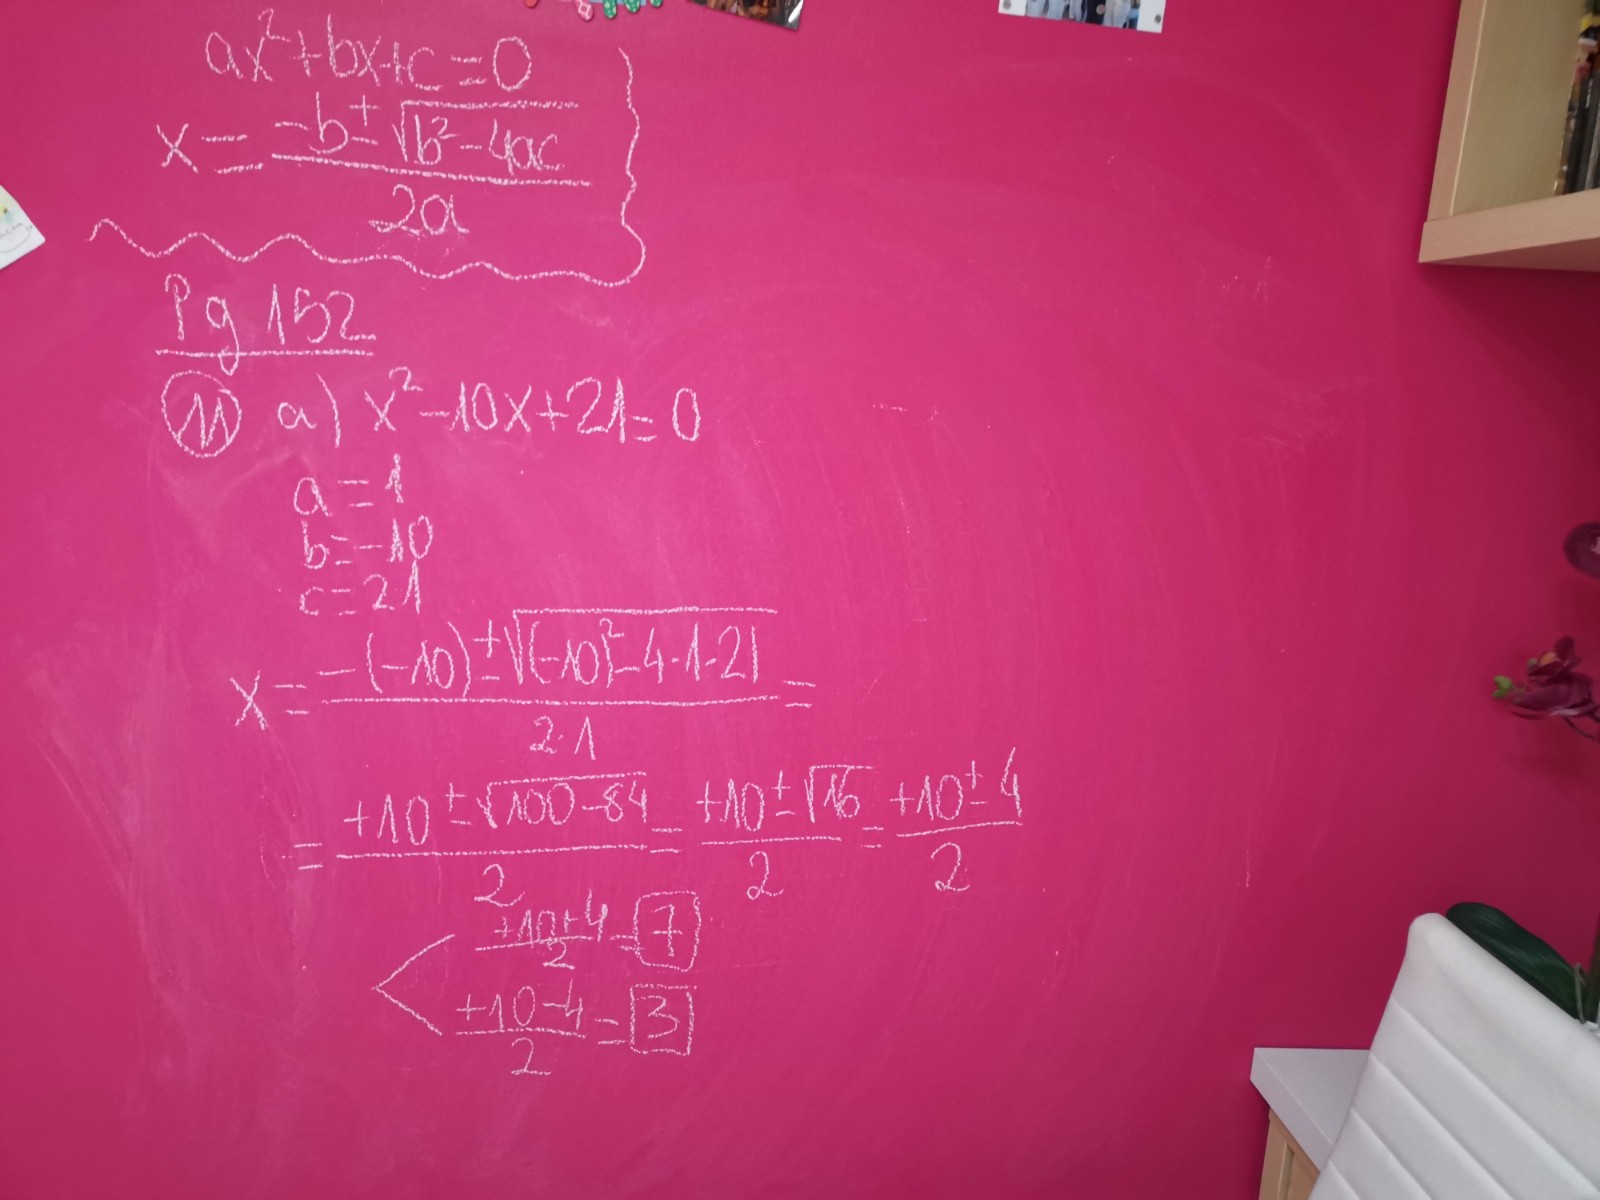 ax²+bx+c=0
x = (-b ± √(b²-4ac)) / 2a
Pg 152
11 a) x²-10x+21=0
a=1
b=-10
c=21
x = (-(-10) ± √((-10)²-4·1·21)) / 2·1 =
= (+10 ± √(100-84)) / 2 = (+10 ± √16) / 2 = (+10 ± 4) / 2
(+10+4) / 2 = 7
(+10-4) / 2 = 3